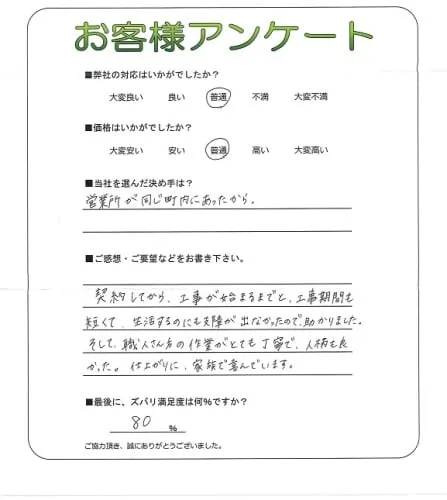 お客様アンケート
■弊社の対応はいかがでしたか？
大変良い 良い 普通 不満 大変不満
■価格はいかがでしたか？
大変安い 安い 普通 高い 大変高い
■当社を選んだ決め手は？
営業所が同じ町内にあったから。
■ご感想・ご要望などをお書き下さい。
契約してから、工事が始まるまでと、工事期間も
短くて、生活するのにも支障が出なかったので、助かりました。
そして、職人さん方の作業がとても丁寧で、人柄も良
かった。仕上がりに、家族で喜んでいます。
■最後に、ズバリ満足度は何%ですか？
80 %
ご協力頂き、誠にありがとうございました。